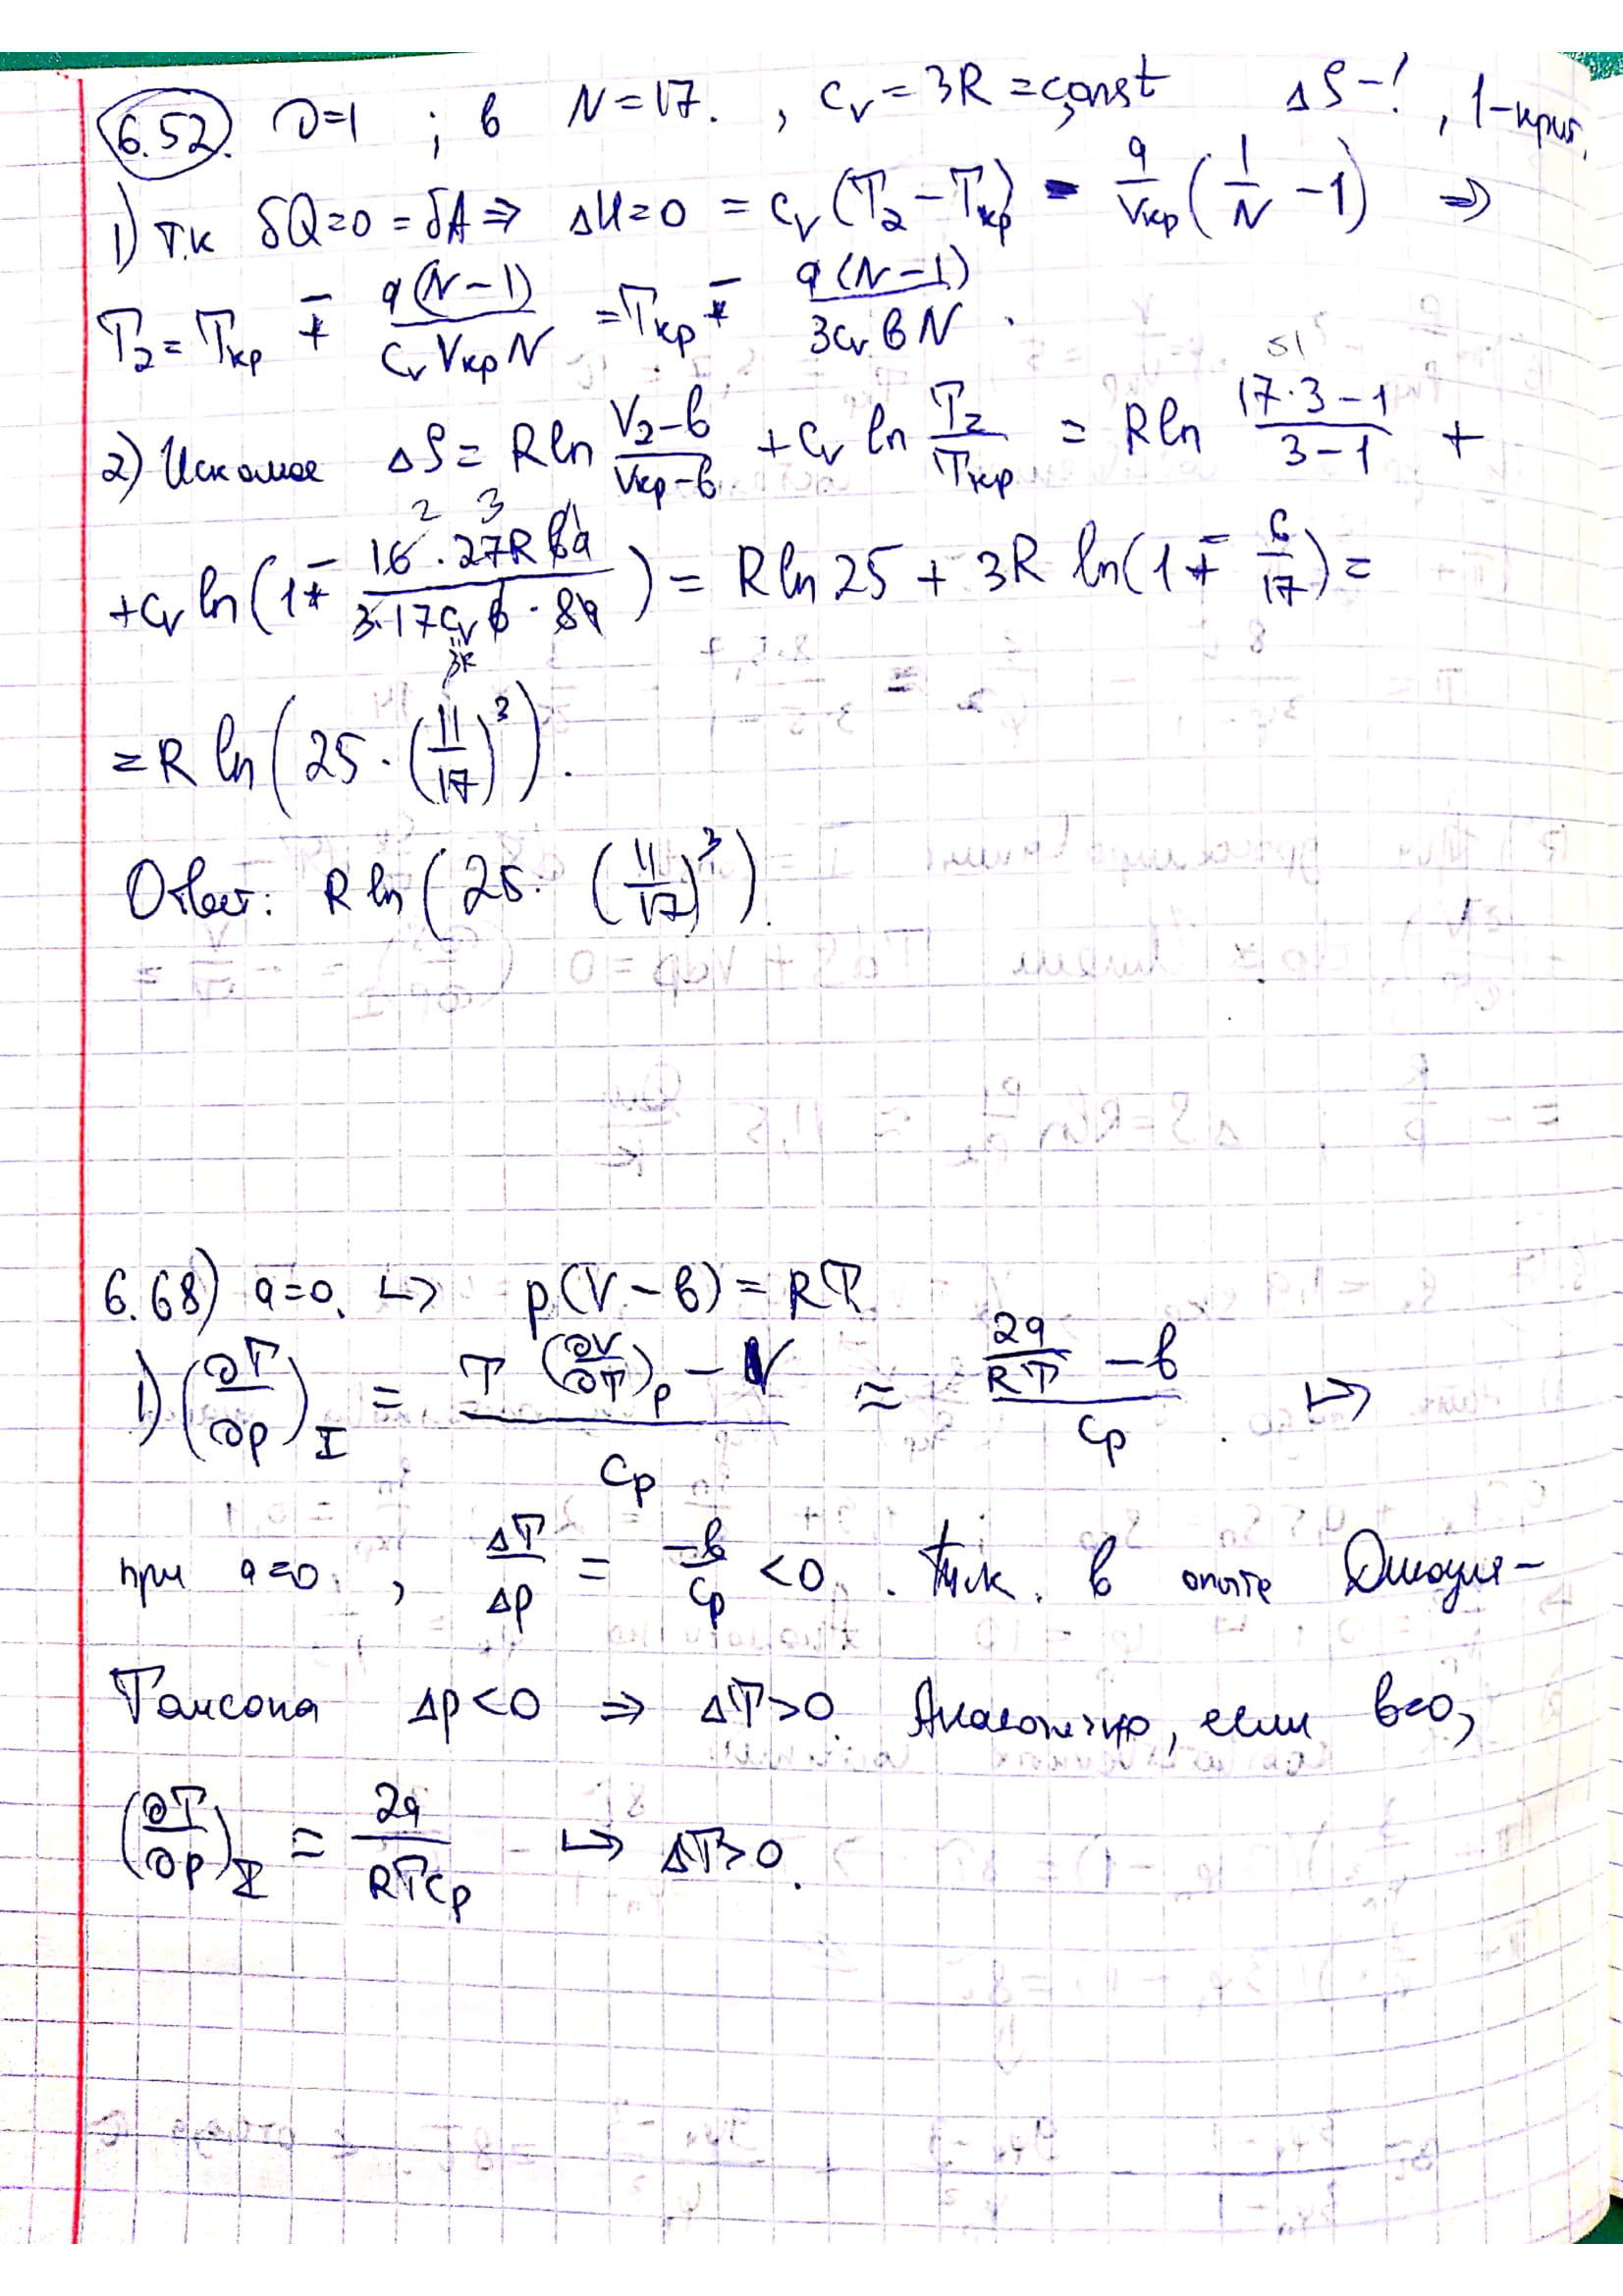 6.52. ν=1 ; в N=17. , Cv = 3R = const ΔS-? , 1-крит.
1) т.к δQ=0=δA ⇒ ΔU=0 = Cv(T2-Tкр) - a/Vкр (1/N - 1) ⇒
T2 = Tкр - a(N-1)/(Cv Vкр N) = Tкр - a(N-1)/(3Cv b N).
2) Искомое ΔS = R ln (V2-b)/(Vкр-b) + Cv ln T2/Tкр = R ln (17·3-1)/(3-1) +
+ Cv ln(1 - (16·27R b a)/(3·17 Cv b·8a)) = R ln 25 + 3R ln(1 - 6/17) =
= R ln(25·(11/17)^3).
Ответ: R ln(25·(11/17)^3).
6.68) a=0. ↳ p(V-b)=RT
1) (∂T/∂p)_I = (T(∂V/∂T)_p - V)/Cp ≈ (2a/RT - b)/Cp. ↳
при a=0, ΔT/Δp = -b/Cp < 0. Т.к. в опыте Джоуля-
Томсона Δp<0 ⇒ ΔT>0. Аналогично, если b=0,
(∂T/∂p)_I = 2a/(RTCp) ↳ ΔT>0.